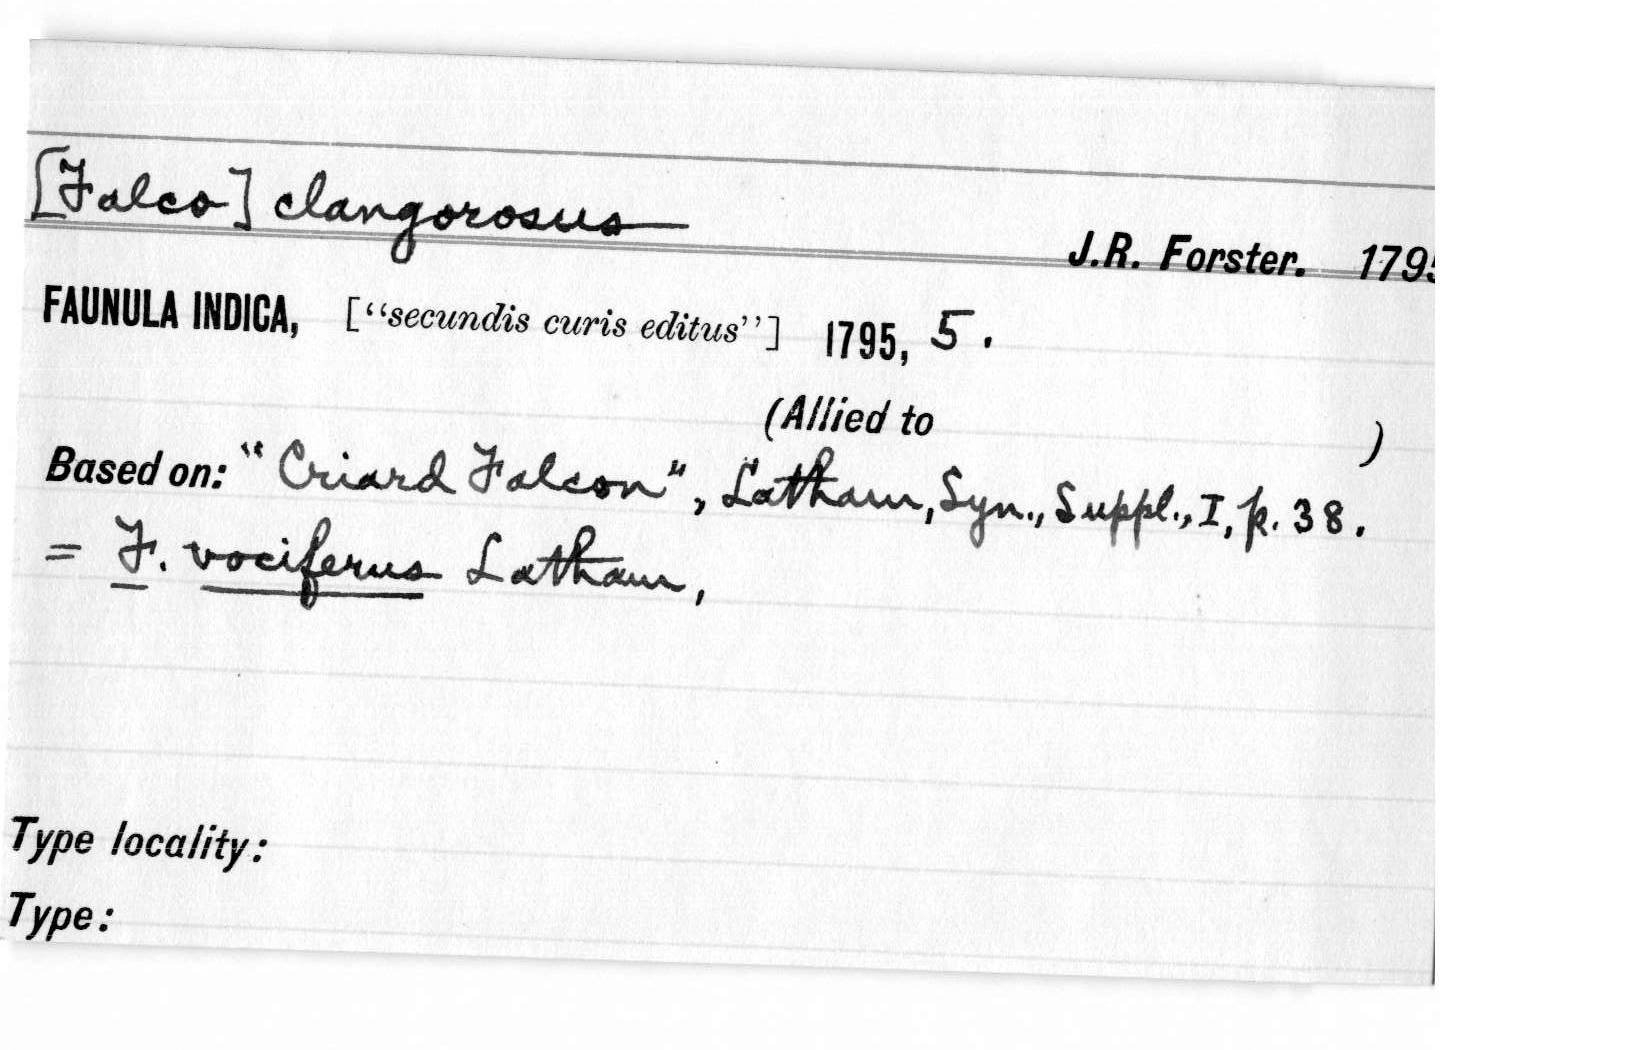 [Falco] clangorosus
J.R. Forster. 1795
FAUNULA INDICA, ["secundis curis editus"] 1795, 5.
(Allied to )
Based on: "Criard Falcon", Latham, Syn., Suppl., I, p. 38.
= F. vociferus Latham,
Type locality:
Type: